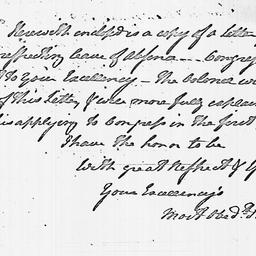 Herewith enclosed is a copy of a letter
respecting leave of Absence --- Congress
to your Excellency - The Colonel
of this Letter, & will more fully explain
his applying to Congress in the first
I have the honor to be
With great Respect &
Your Excellency's
Most Obed.t